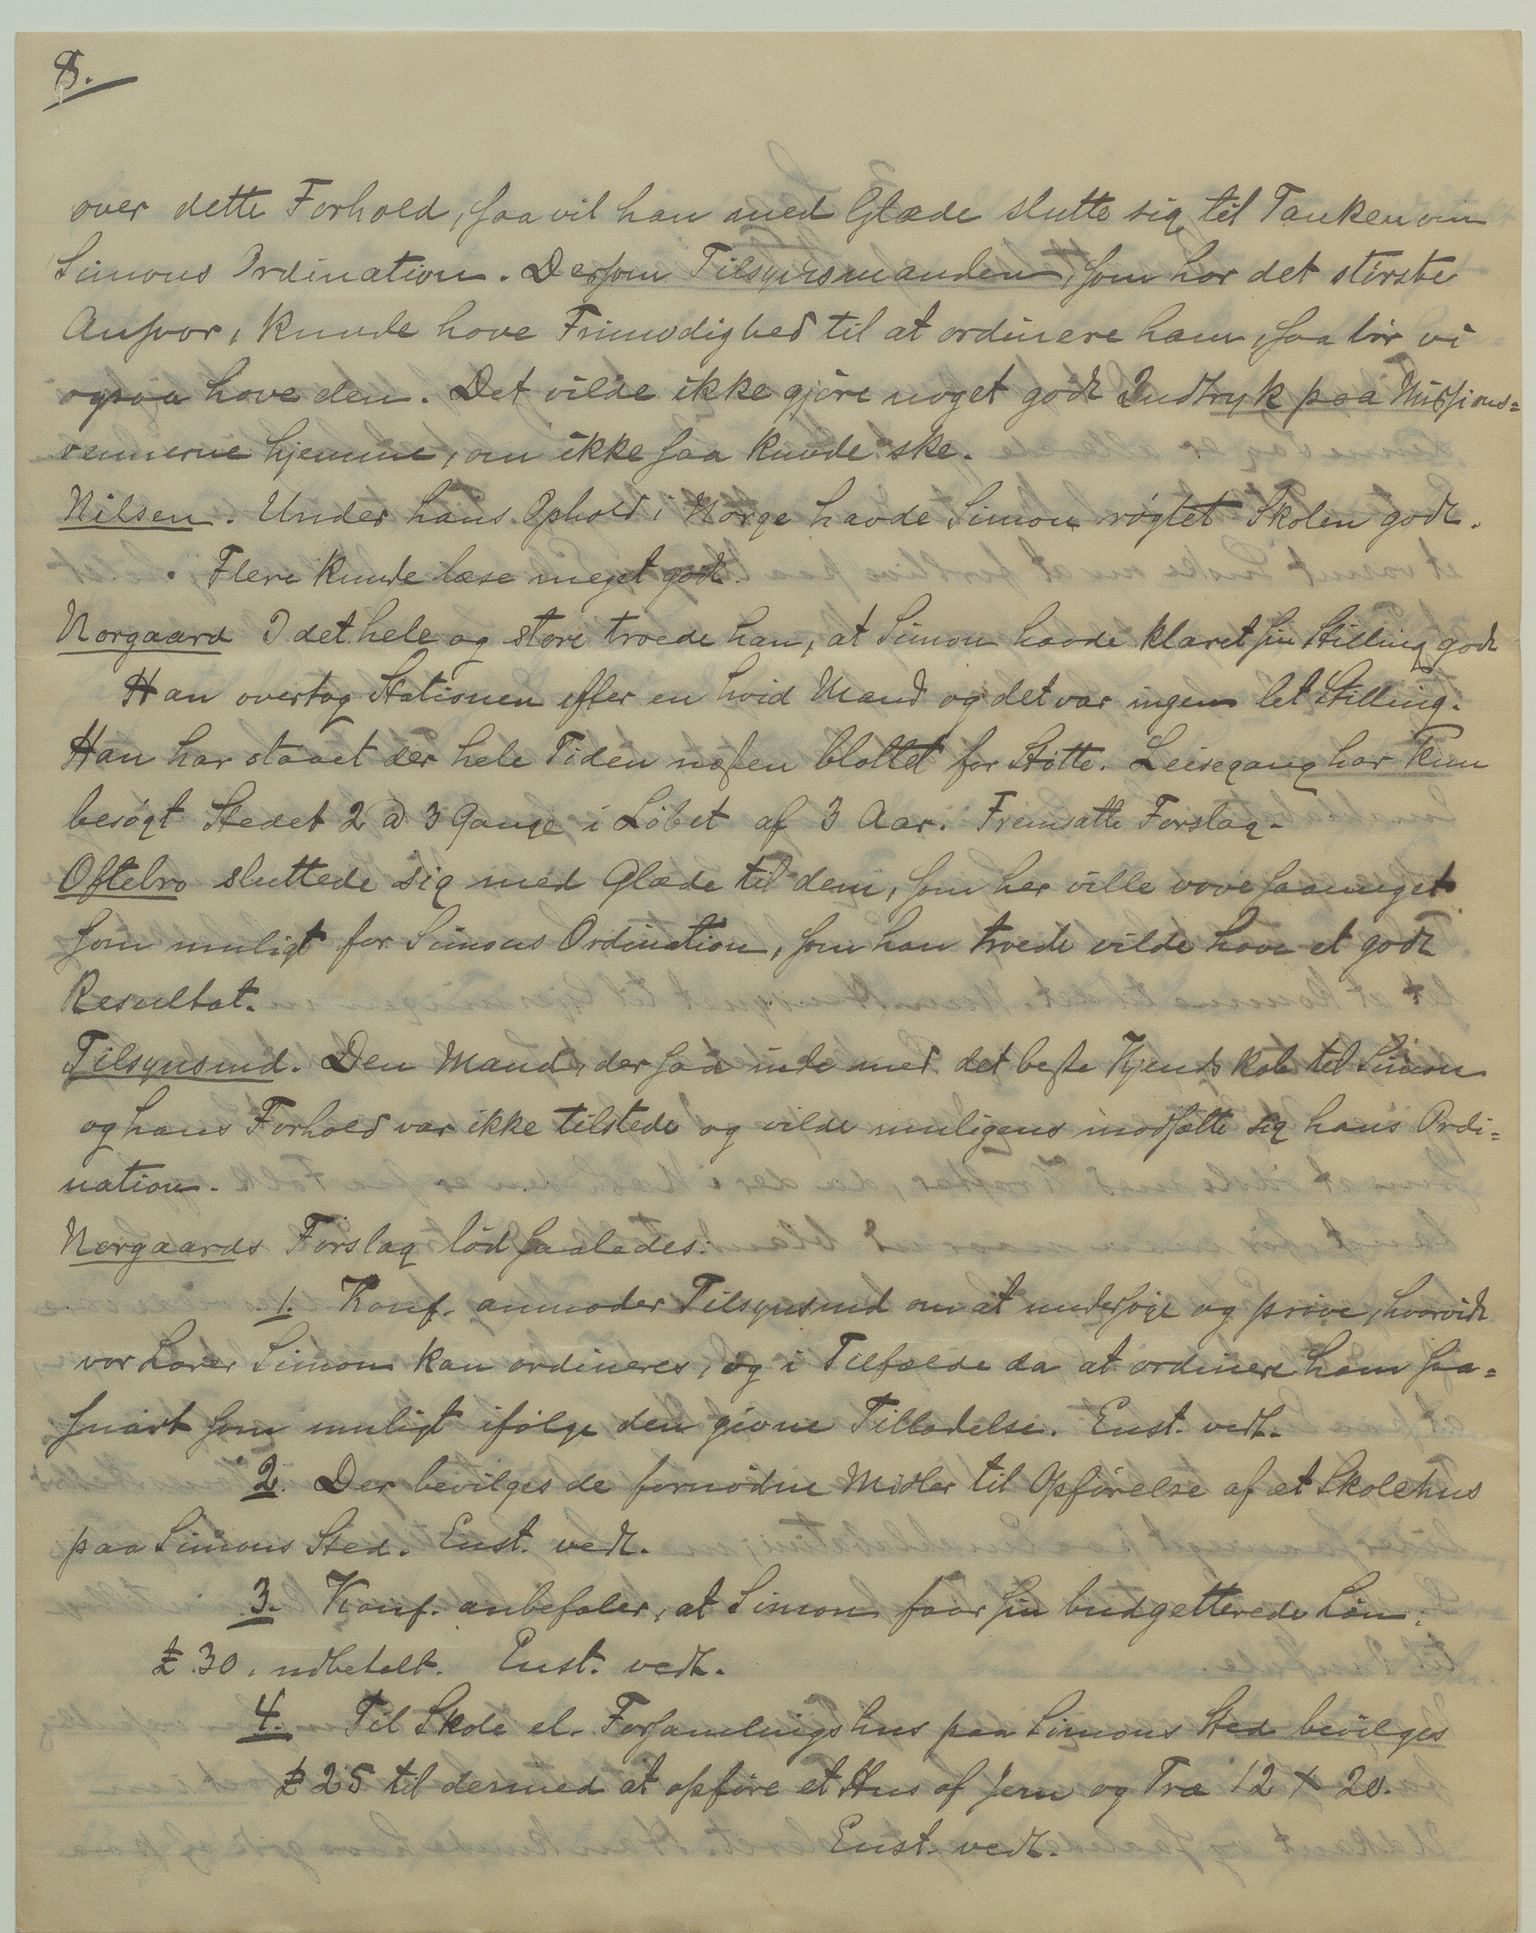 8.
over dette Forhold, saa vil han med Glæde slutte sig til Tanken om
Simons Ordination. Dersom Tilsynsmanden, som har det störste
Ansvar, kunde have Frimodighed til at ordinere ham, saa bör vi
ogsaa have den. Det vilde ikke gjöre noget godt Indtryk paa Missions=
vennerne hjemme, om ikke saa kunde ske.
Nilsen. Under hans Ophold i Norge havde Simon rögtet Skolen godt.
Flere kunde læse meget godt.
Norgaard I det hele og store troede han, at Simon havde klaret sin Stilling godt
Han overtog Stationen efter en hvid Mand og det var ingen let Stilling.
Han har staaet der hele Tiden næsten blottet for Stötte. Leisegang har kun
besögt Stedet 2 a 3 Gange i Löbet af 3 Aar. Fremsatte Forslag.
Oftebro sluttede sig med Glæde til dem, som her ville vove saameget
som muligt for Simons Ordination, som han troede vilde have et godt
Resultat.
Tilsynsmd. Den Mand, der saa inde med det beste Kjendskab til Simon
og hans Forhold var ikke tilstede og vilde muligens modsætte sig hans Ordi=
nation.
Norgaards Forslag löd saaledes:
1. Konf. anmoder Tilsynsmd om at undersöge og pröve, hvorvidt
vor Lærer Simon kan ordineres, og i Tilfælde da at ordinere ham saa=
snart som muligt ifölge den givne Tilladelse. Enst. vedt.
2. Der bevilges de fornödne Midler til Opförelse af et Skolehus
paa Simons Sted. Enst. vedt.
3. Konf. anbefaler, at Simon faar sin budgetterede Lön:
£ 30, udbetalt. Enst. vedt.
4. Til Skole el. Forsamlingshus paa Simons Sted bevilges
£ 25 til dermed at opföre et Hus af Jern og Træ 12 x 20.
Enst. vedt.